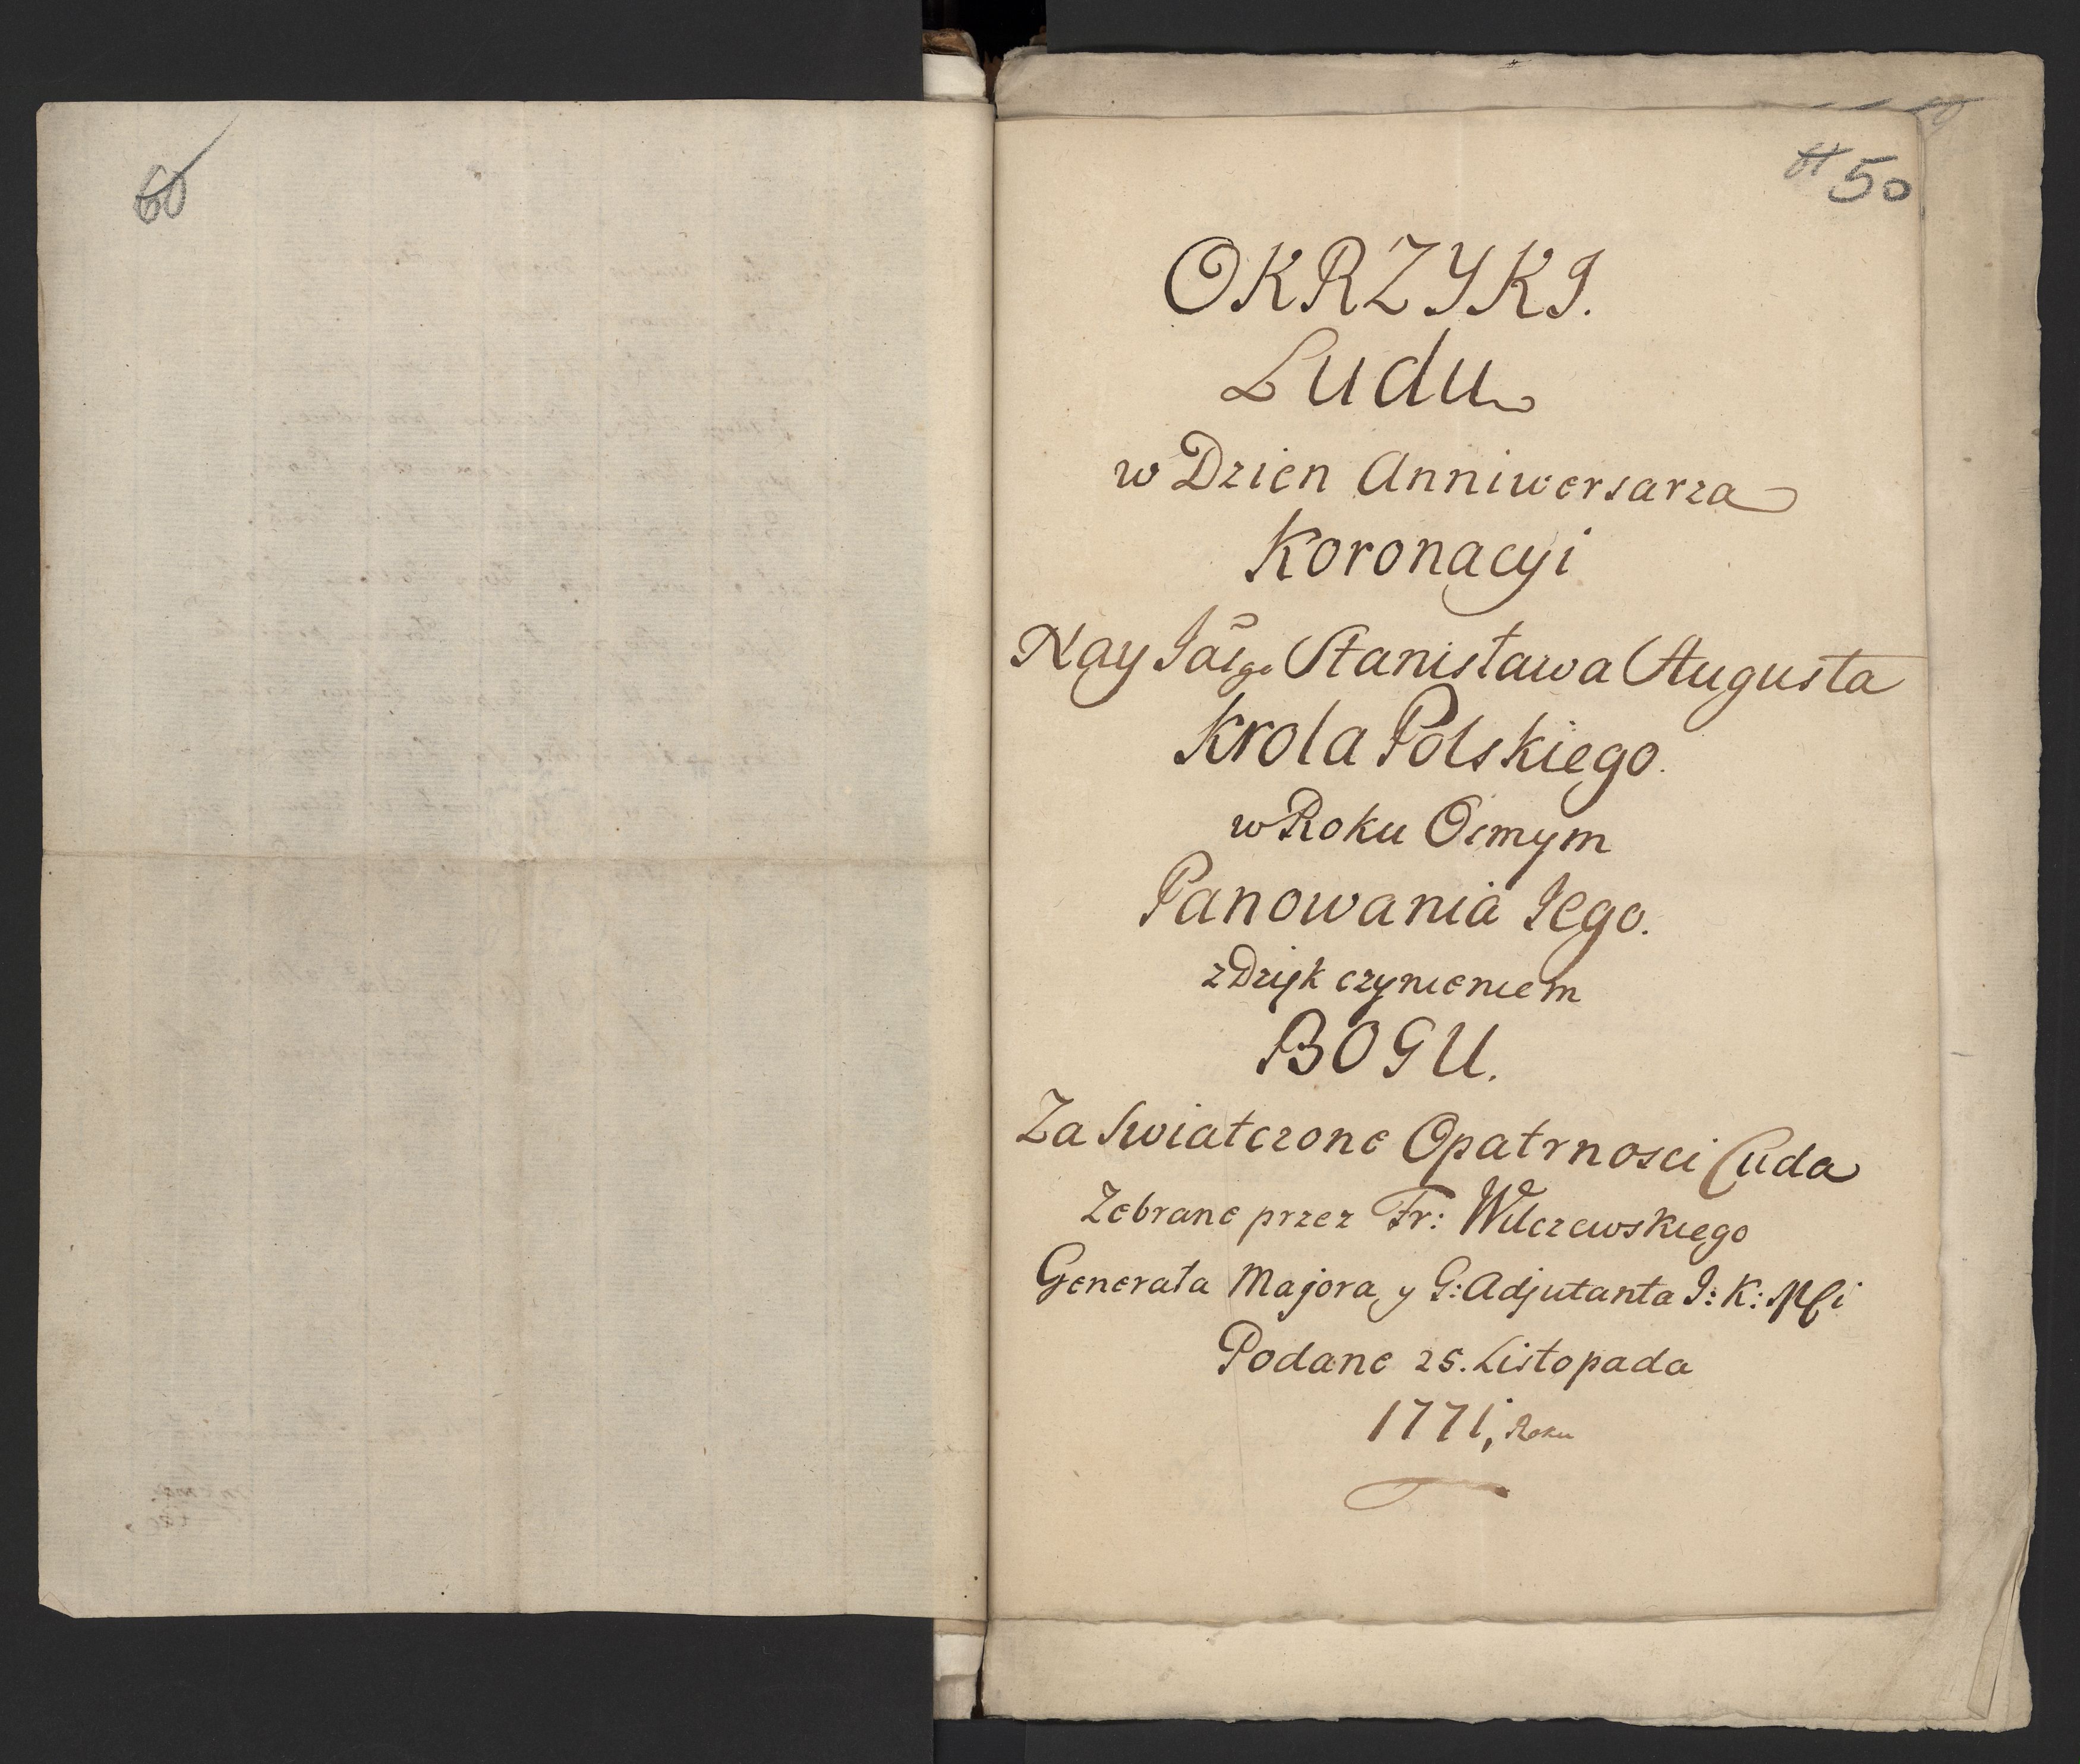 60
61 50
OKRZYKI.
Ludu
w Dzien Anniwersarza
Koronacyi
Nay Jasgo Stanisława Augusta
Krola Polskiego.
w Roku Osmym
Panowania Iego.
z Dzięk czynieniem
BOGU.
Za Swiatczone Opatrnosci Cuda
Zebrane przez Fr: Wilczewskiego
Generała Majora y G: Adjutanta J: K: Mci
Podane 25. Listopada
1771, Roku